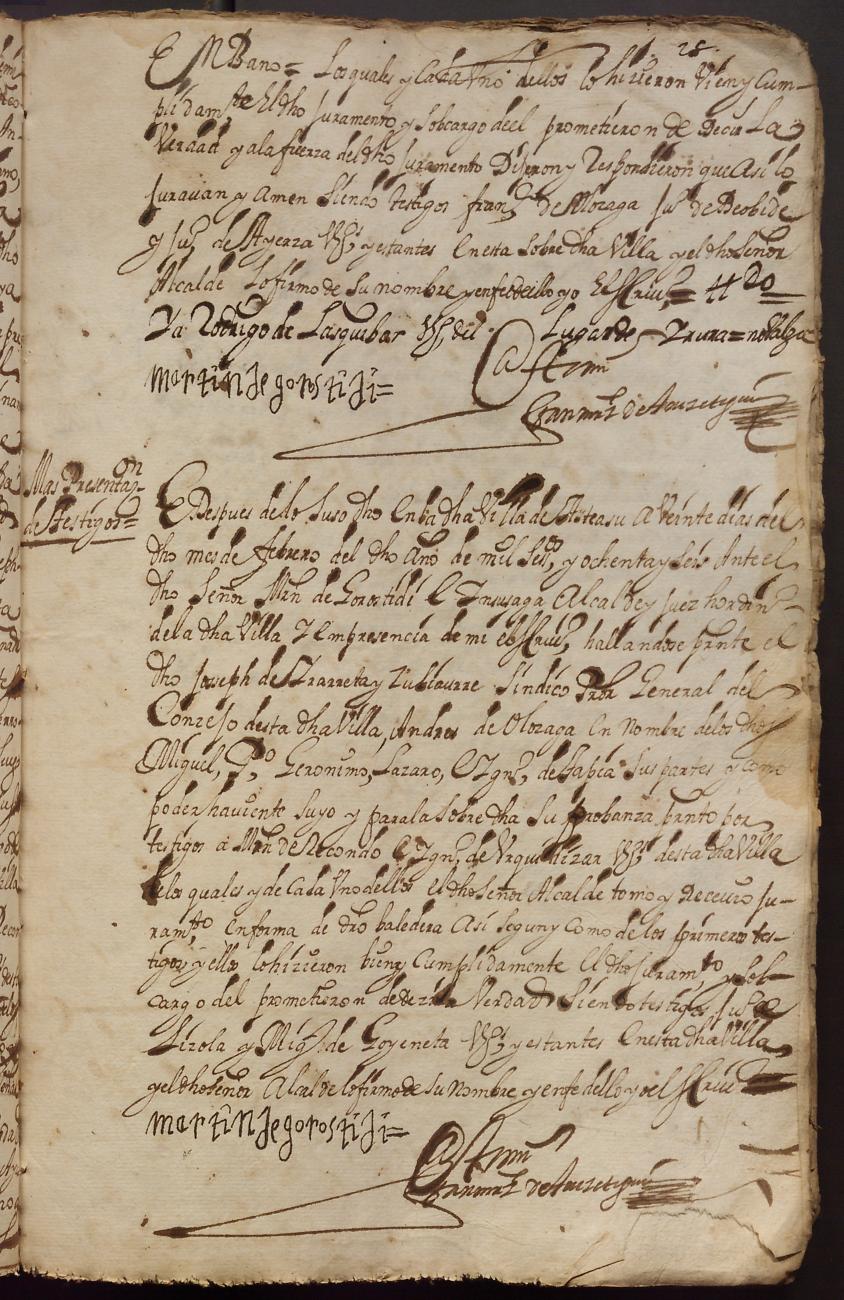 28.
E M Bano= Los quales y Cada Uno dellos lo hizieron Vien y Cum-
plidam.te El dho juramento y Sobcargo deel prometieron de Decir La
Verdad y a la fuerza del dho juramento Dijeron y Respondieron que Asi lo
juravan y amen Siendo testigos fran.co de Olozaga ju.o de Beobide
y ju.o de Ayerza V.os y estantes En esta Sobre dha Villa y el dho Señor
Alcalde lo firmo de Su nombre y en fee de ello yo El Scriu.o = tt.do
Va Rodrigo de Lasquibar V.o del Lugar de Yrura = no Valga
martin de gorostidi=
Ante mi
Mas Presentaz.on
de testigos=
E Despues de lo Suso dho En la dha Villa de Asteasu A Veinte dias del
dho mes de febrero del dho Año de mil Seis.os y ochenta y Seis Ante el
dho Señor Mrn de Gorostidi E Ynsusaga Alcalde y juez hordin.o
de la dha Villa Y Em presencia de mi el Scriu.o hallandose prnte el
dho joseph de Yrarreta y Zubiaurre Sindico Pror General del
Conzejo desta dha Villa, Andres de Olozaga En Nombre de los dhos
Miguel, P.o Geronimo, Lazaro, E Ygn.o de Tapia Sus partes y como
poder haviente Suyo y para la Sobre dha Su probanza prnto por
testigos a Mrn de Recondo E Ygn.o de Vrquidizar V.os desta dha Villa
de los quales y de Cada Uno dellos el dho Señor Alcalde tomo y Recevio ju-
ram.to En forma de dro baledera Asi Segun y Como de los primeros tes-
tigos y ellos lo hizieron bien y Cumplidamente El dho juram.to y Sob-
cargo del prometieron de dezir Verdad Siendo testigos ju.o de
Lizola y Mig.l de Goyeneta V.os y estantes En esta dha Villa
y el dho Señor Alcalde lo firmo de Su Nombre y en fe dello yo el Scriu.o
martin de gorostidi=
Ante mi